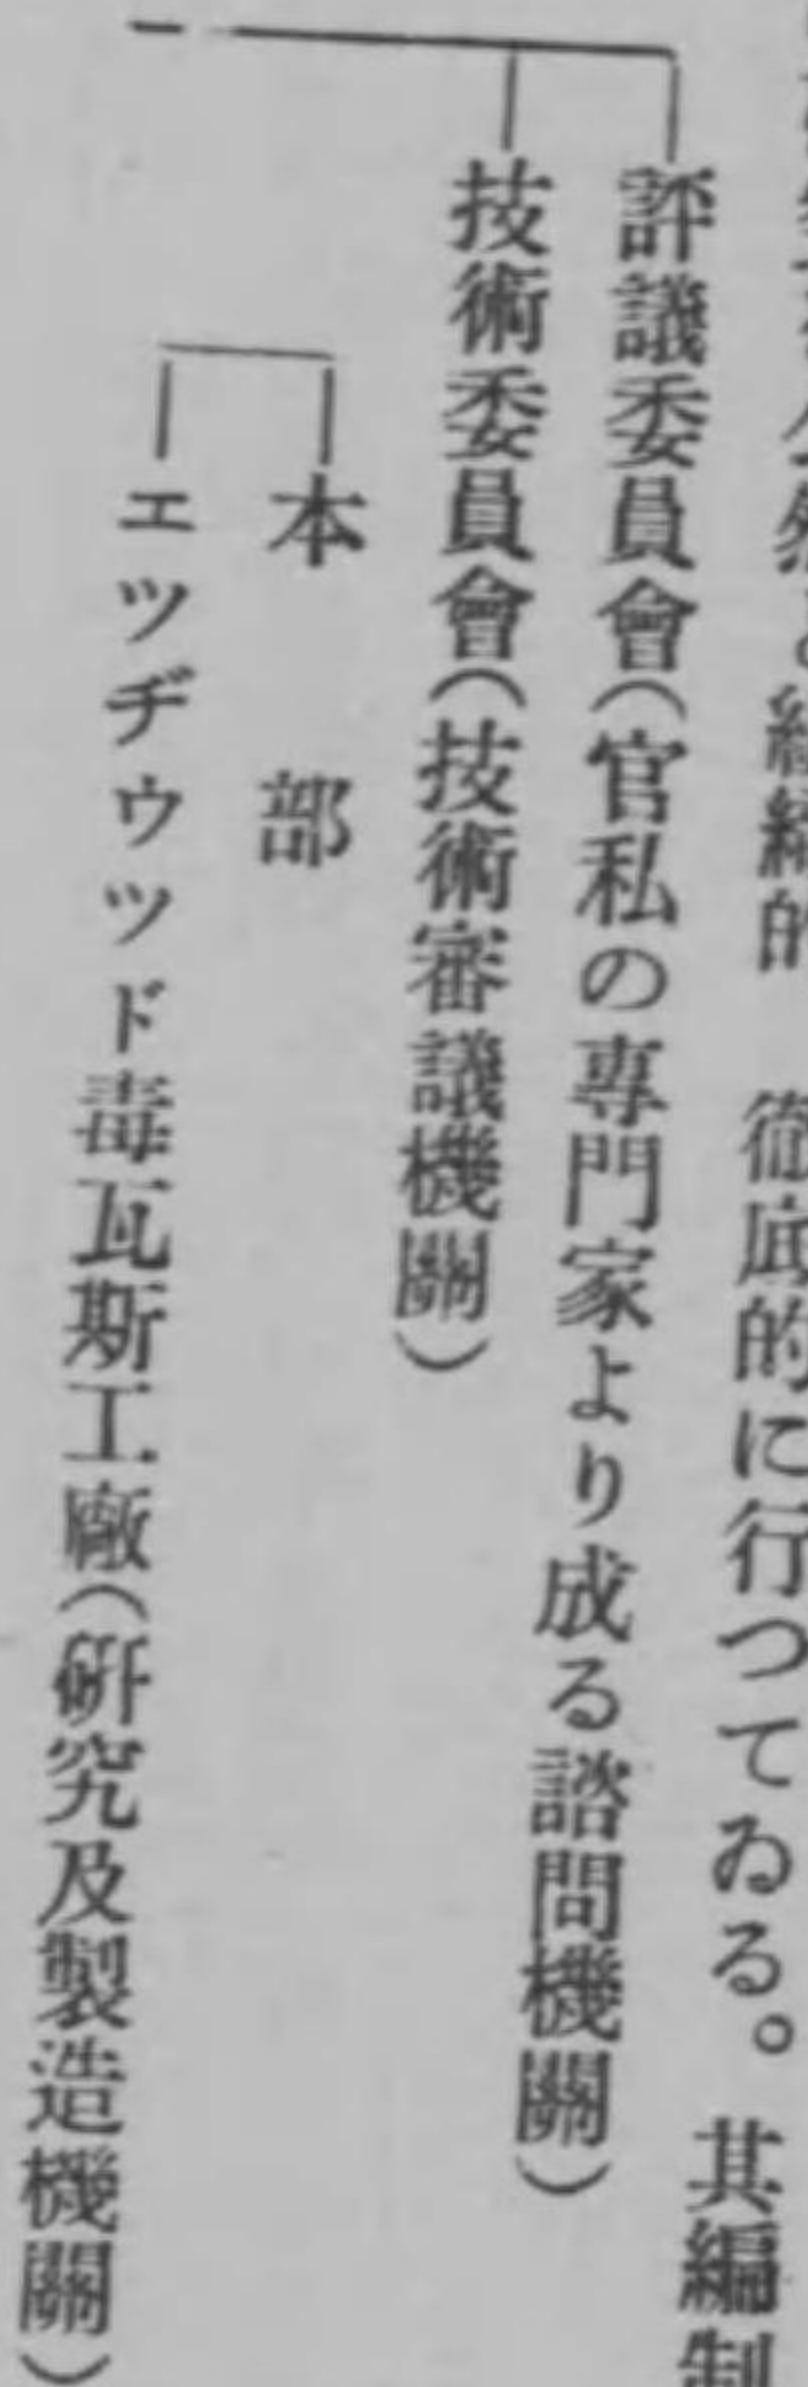 的 徹底的に行つてゐる。其編制
評議委員會(官私の専門家より成る諮問機關)
技術委員會(技術審議機關)
本部
エツヂウツド毒瓦斯工廠(研究及製造機關)